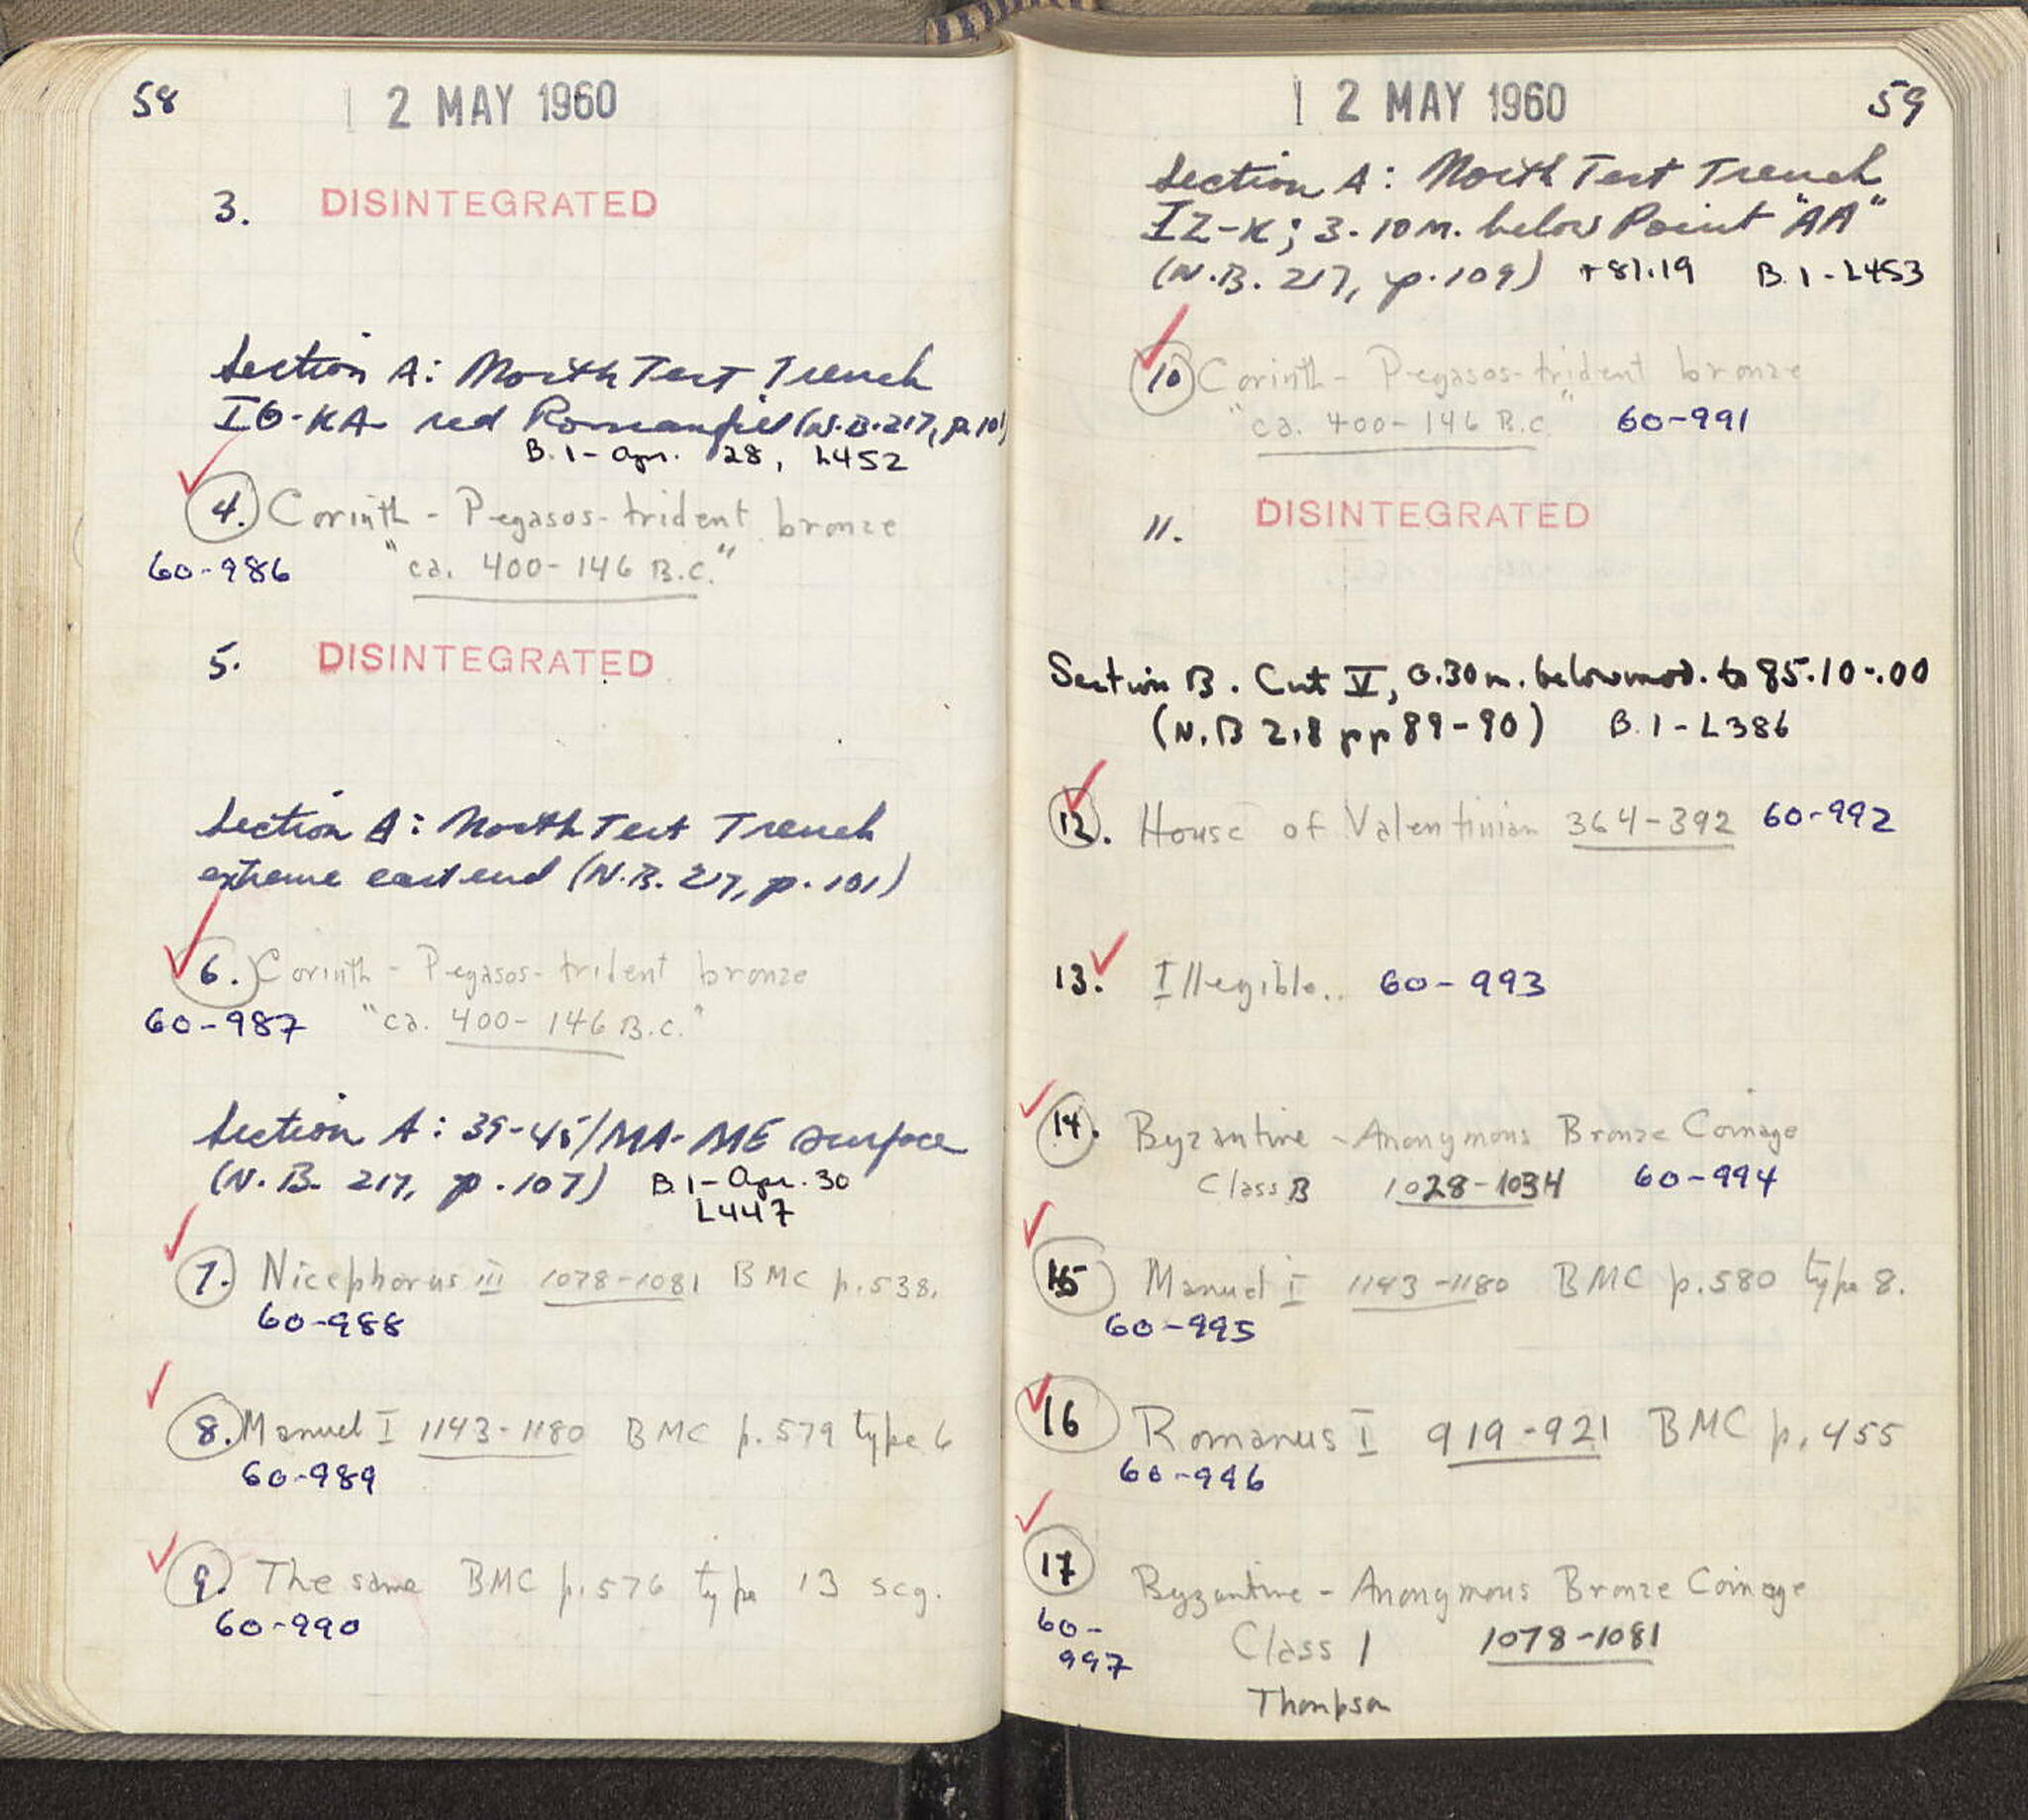 58
12 MAY 1960
3. DISINTEGRATED
Section A: North Test Trench
IΘ-KA red Roman fill (N.B. 217, p. 101)
B.1 - Apr. 28, L452
4. Corinth - Pegasos-trident bronze
60-986 "ca. 400-146 B.C."
5. DISINTEGRATED
Section A: North Test Trench
extreme east end (N.B. 217, p. 101)
6. Corinth - Pegasos-trident bronze
60-987 "ca. 400-146 B.C."
Section A: 39-45/MA-ME surface
(N.B. 217, p. 107) B.1 - Apr. 30
L447
7. Nicephorus III 1078-1081 BMC p. 538.
60-988
8. Manuel I 1143-1180 BMC p. 579 type 6
60-989
9. The same BMC p. 576 type 13 scg.
60-990
12 MAY 1960
59
Section A: North Test Trench
IZ-K; 3.10 m. below Point "AA"
(N.B. 217, p. 109) +81.19 B.1 - L453
10 Corinth - Pegasos-trident bronze
"ca. 400-146 B.C." 60-991
11. DISINTEGRATED
Section B. Cut V, 0.30 m. below mod. to 85.10-.00
(N.B 218 pp 89-90) B.1 - L386
12. House of Valentinian 364-392 60-992
13. Illegible.. 60-993
14. Byzantine - Anonymous Bronze Coinage
Class B 1028-1034 60-994
15 Manuel I 1143-1180 BMC p. 580 type 8.
60-995
16 Romanus I 919-921 BMC p. 455
60-996
17 Byzantine - Anonymous Bronze Coinage
60-
997 Class I 1078-1081
Thompson